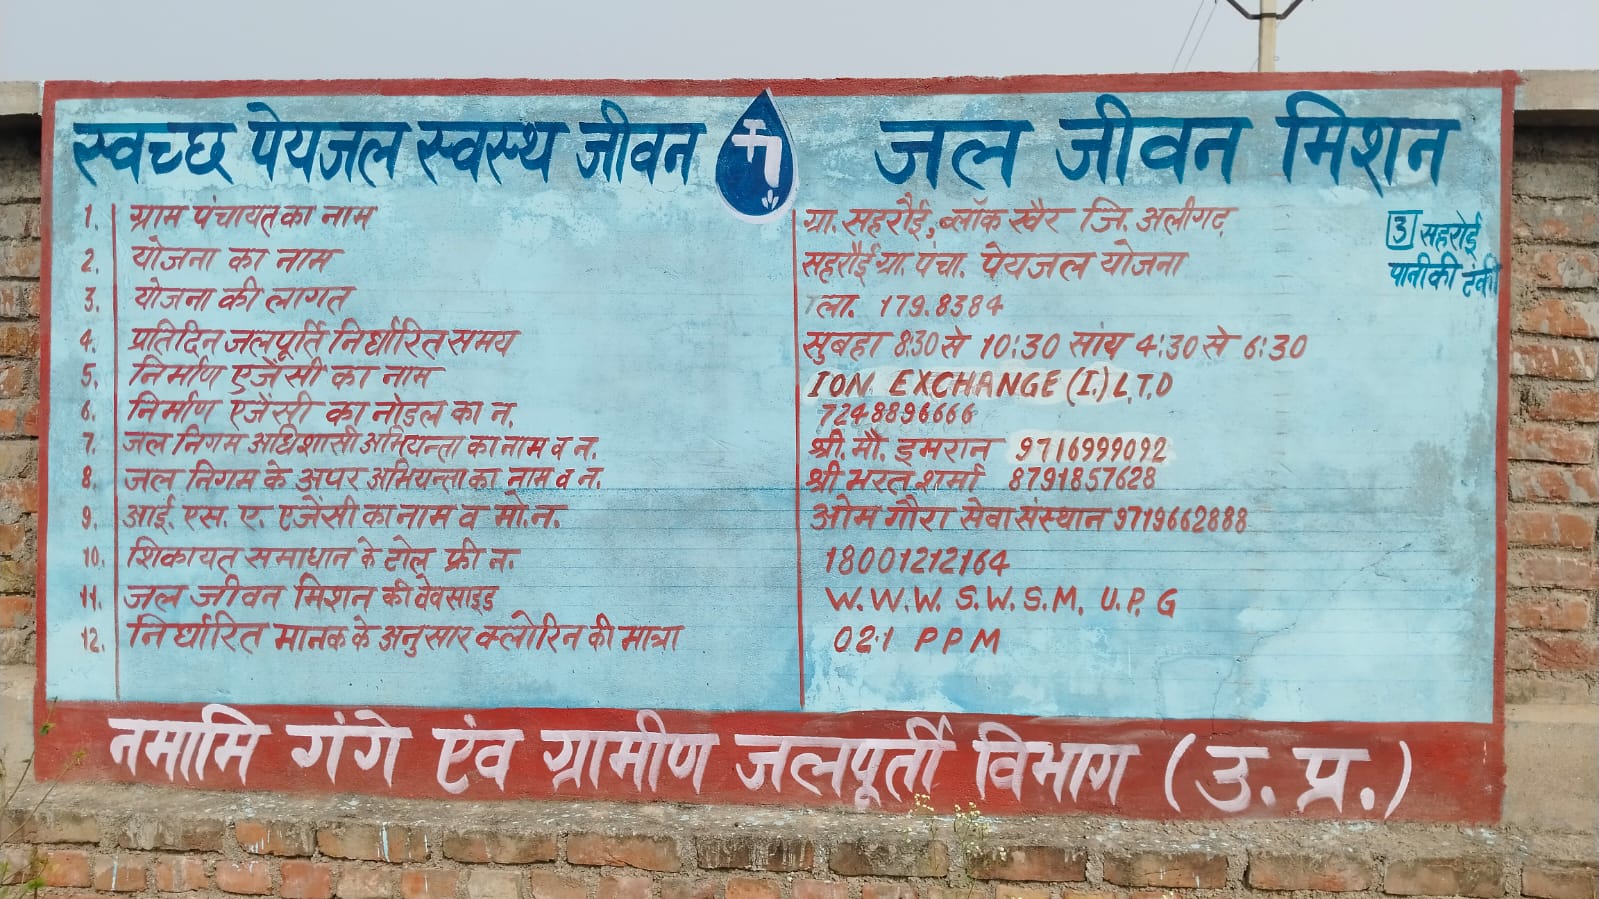 स्वच्छ पेयजल स्वस्थ जीवन जल जीवन मिशन
1. ग्राम पंचायत का नाम ग्रा. सहरौई, ब्लॉक खैर जि. अलीगढ़
3 सहरोई
पानी की टंकी
2. योजना का नाम सहरौई ग्रा. पंचा. पेयजल योजना
3. योजना की लागत ला. 179.8384
4. प्रतिदिन जलपूर्ति निर्धारित समय सुबहा 8:30 से 10:30 सांय 4:30 से 6:30
5. निर्माण एजेंसी का नाम ION EXCHANGE (I.) L.T.D
6. निर्माण एजेंसी का नोडल का न. 7248896666
7. जल निगम अधिशासी अभियन्ता का नाम व न. श्री. मौ. इमरान 9716999092
8. जल निगम के अपर अभियन्ता का नाम व न. श्री भरत शर्मा 8791857628
9. आई. एस. ए. एजेंसी का नाम व मो. न. ओम गौरा सेवा संस्थान 9719662888
10. शिकायत समाधान के टोल फ्री न. 18001212164
11. जल जीवन मिशन की वेवसाइड W.W.W. S.W.S.M. U.P. G
12. निर्धारित मानक के अनुसार क्लोरिन की मात्रा 02.1 PPM
नमामि गंगे एंव ग्रामीण जलपूर्ती विभाग (उ.प्र.)